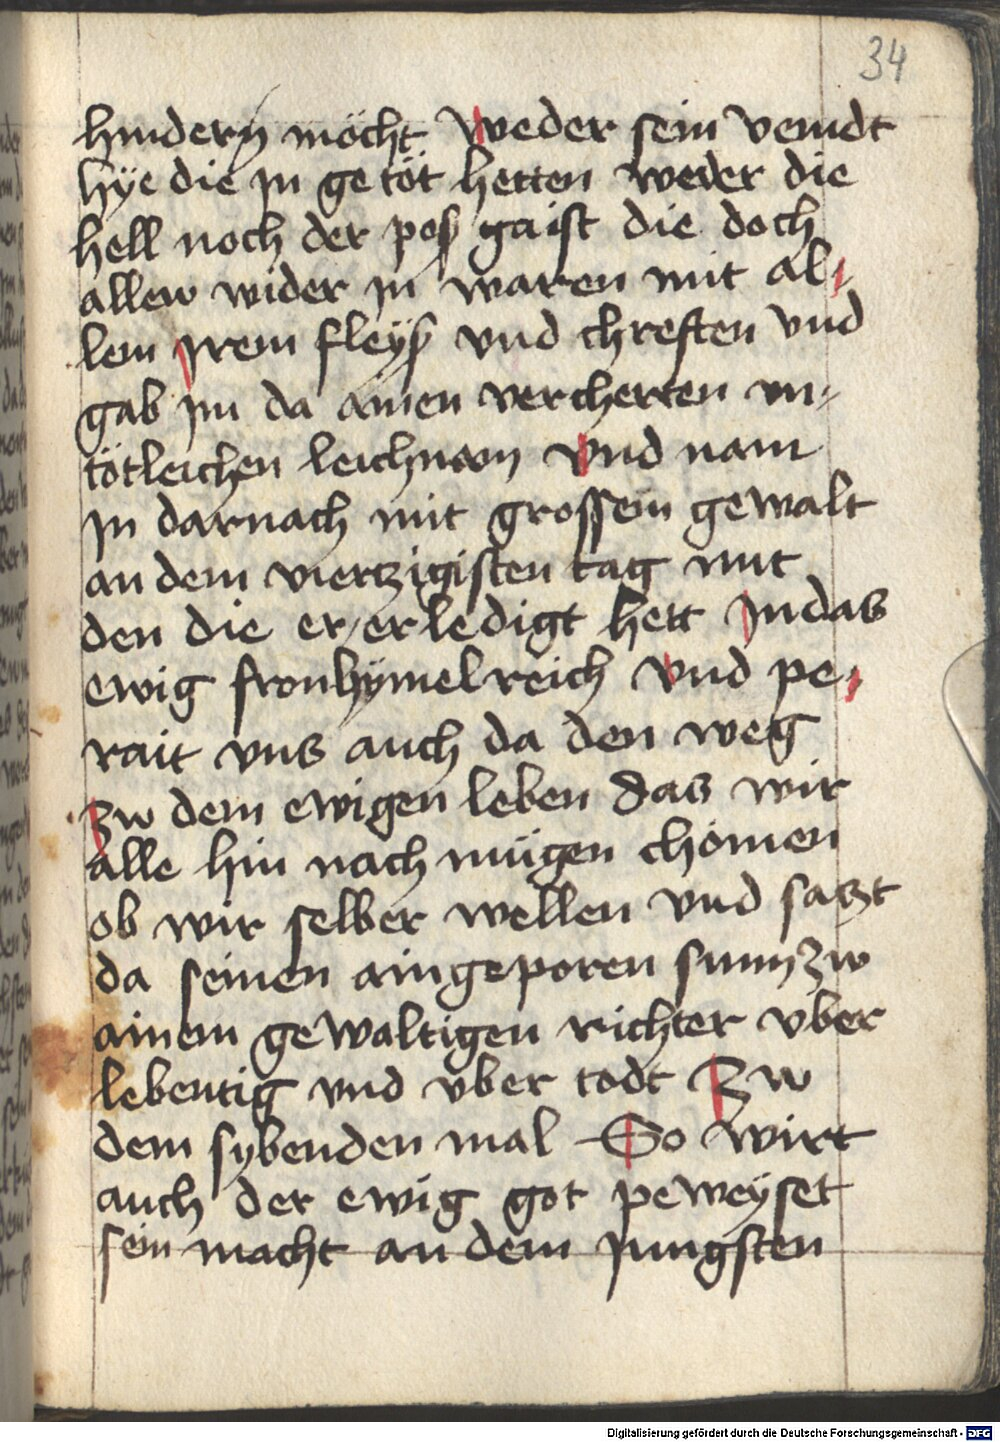 34
hindern möcht Weder sein veindt
hÿe die jn getöt hetten weder die
hell noch der pos gaist die doch
allew wider jn waren mit al-
lem jrem fleÿs vnd chreften vnd
gab jm da ainen vercherten vn-
tötleichen leichnam Vnd nam
jn darnach mit grossem gewalt
an dem viertzigisten tag mit
den die er erledigt hett Jn das
ewig fronhÿmelreich vnd pe-
rait vns auch da den weg
zw dem ewigen leben das wir
alle hin nach mügen chömen
ob wir selber wellen vnd saczt
da seinen aingeporen sunn zw
ainem gewaltigen richter vber
lebentig vnd vber todt Zw
dem sybenden mal So wirt
auch der ewig got peweÿset
sein macht an dem jungsten
Digitalisierung gefördert durch die Deutsche Forschungsgemeinschaft - DFG